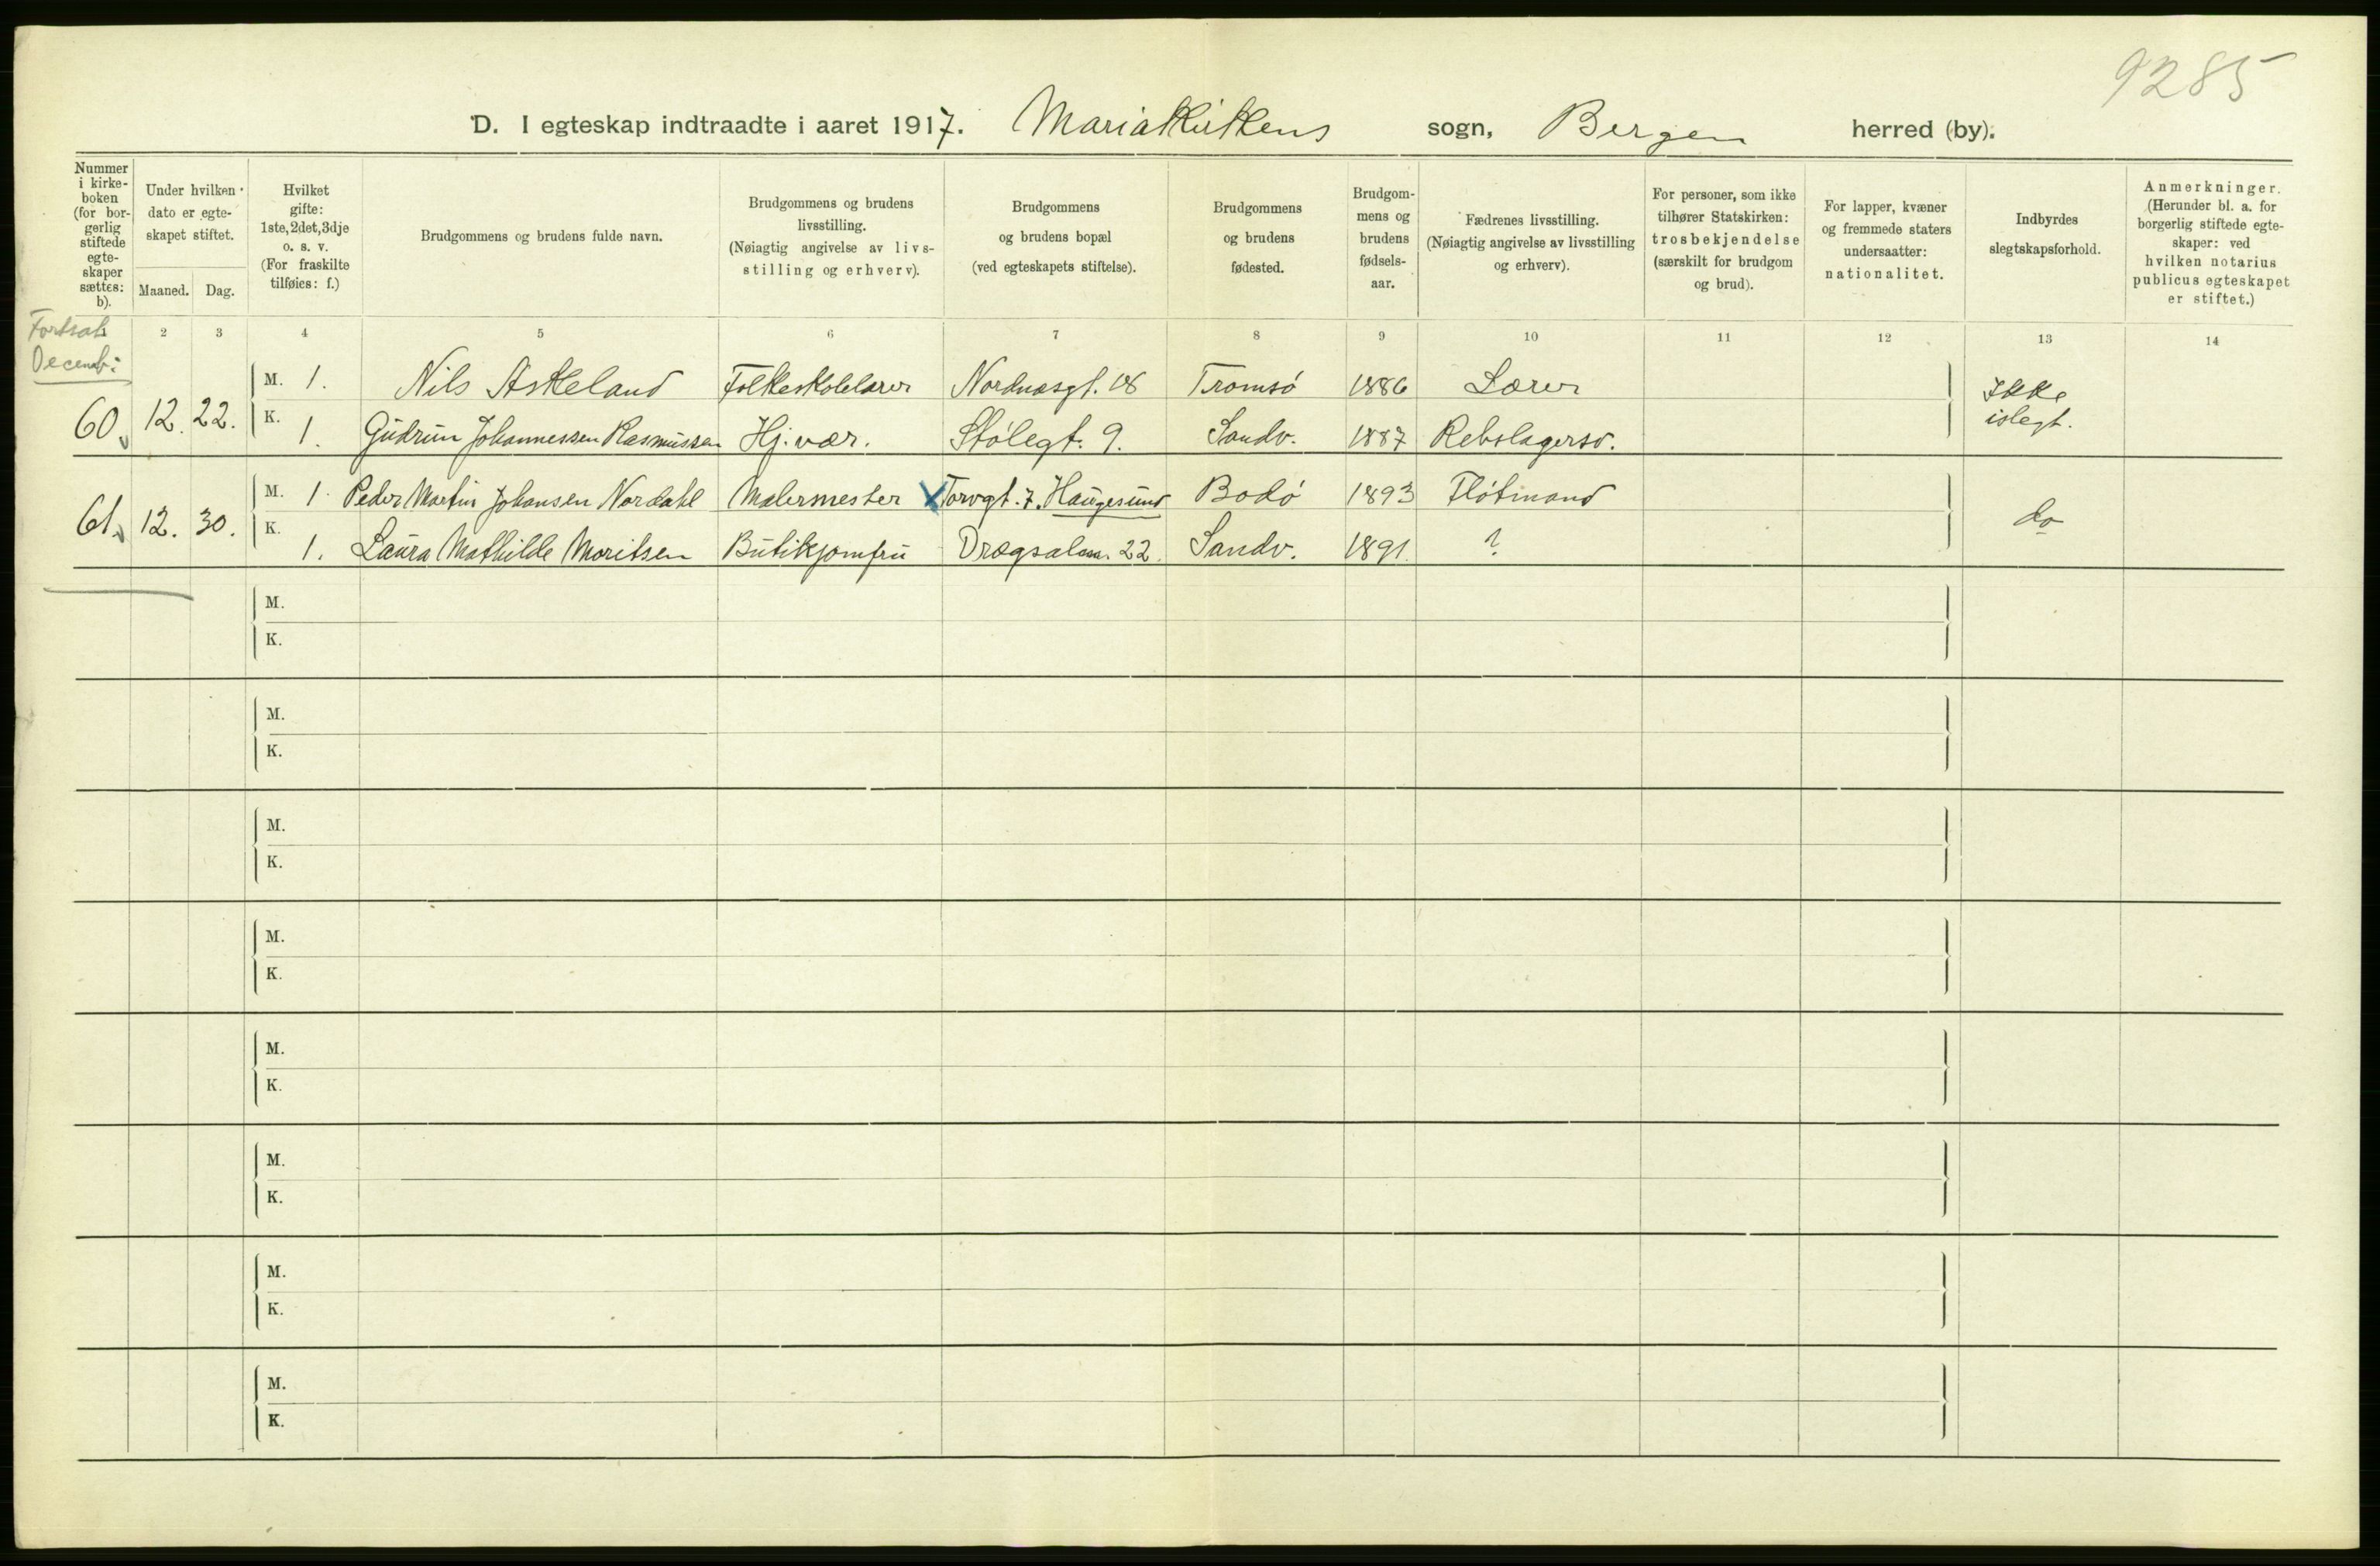 9285
D. I egteskap indtraadte i aaret 1917. Mariakirkens sogn, Bergen herred (by).
Nummer i kirke-boken (for bor-gerlig stiftede egte-skaper sættes: b).
Under hvilken dato er egte-skapet stiftet.
Maaned. Dag.
Hvilket gifte: 1ste, 2det, 3dje o. s. v. (For fraskilte tilføies: f.)
Brudgommens og brudens fulde navn.
Brudgommens og brudens livsstilling. (Nøiagtig angivelse av livs-stilling og erhverv).
Brudgommens og brudens bopæl (ved egteskapets stiftelse).
Brudgommens og brudens fødested.
Brudgom-mens og brudens fødsels-aar.
Fædrenes livsstilling. (Nøiagtig angivelse av livsstilling og erhverv).
For personer, som ikke tilhører Statskirken: trosbekjendelse (særskilt for brudgom og brud).
For lapper, kvæner og fremmede staters undersaatter: nationalitet.
Indbyrdes slegtskapsforhold.
Anmerkninger. (Herunder bl. a. for borgerlig stiftede egte-skaper: ved hvilken notarius publicus egteskapet er stiftet.)
Fortsat
2 3 4 5 6 7 8 9 10 11 12 13 14
Decemb:
M. 1. Nils Askeland Folkeskolelærer Nordnæsgt. 18 Tromsö 1886 Lærer
60. 12. 22. Ikke islegt.
K. 1. Gudrun Johannessen Rasmussen Hj. vær. Stölegt. 9. Sandv. 1887 Rebslagersv.
M. 1. Peder Martin Johansen Nordahl Malermester X Torvgt. 7. Haugesund Bodö 1893 Flötmand
61. 12. 30. do
K. 1. Laura Mathilde Moritsen Butikjomfru Drægsalm. 22. Sandv. 1891. ?
M.
K.
M.
K.
M.
K.
M.
K.
M.
K.
M.
K.
M.
K.
M.
K.